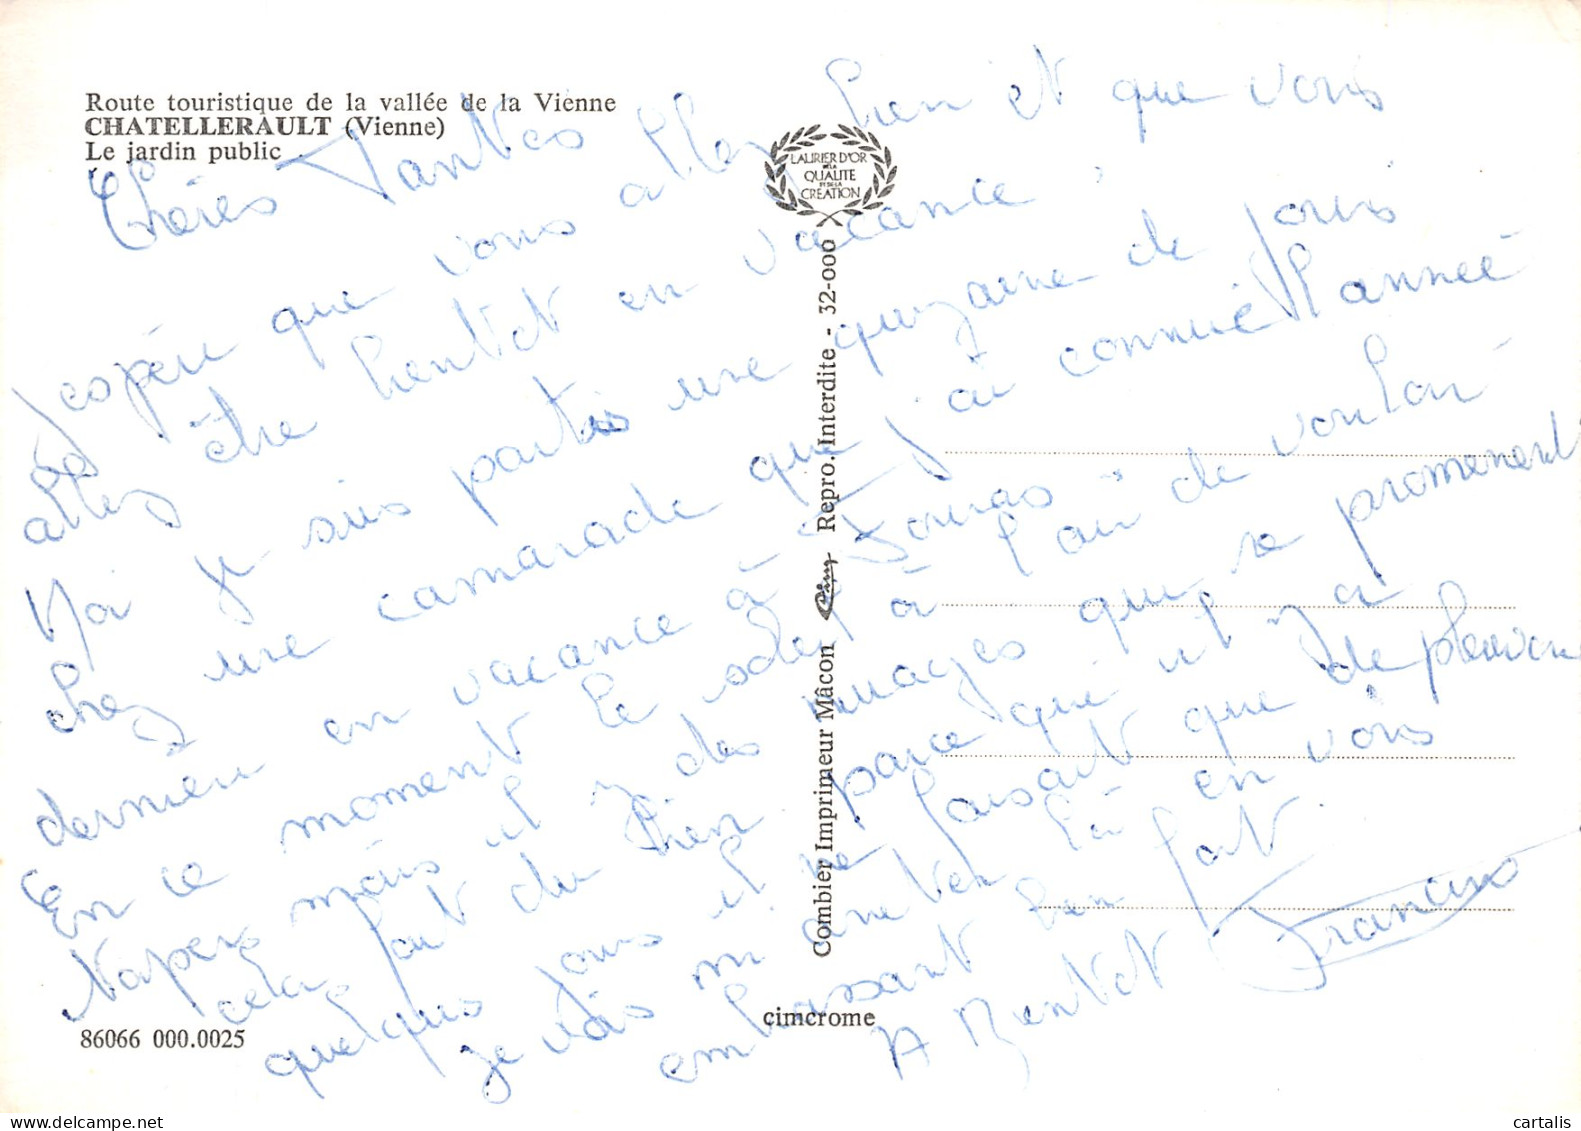 Route touristique de la vallée de la Vienne
CHATELLERAULT (Vienne)
Le jardin public
LAURIER D'OR
DE LA
QUALITE
ET DE LA
CREATION
Chères Tantes
J'espère que vous allez bien et que vous
allez être bientôt en vacance.
Moi je suis partis une quinzaine de jours
chez une camarade que j'ai connue l'année
dernière en vacance à
En ce moment le soleil à l'air de vouloir
mais il y des nuages qui se promenent
cela fait du bien parce que il y a
quelques jours il ne faisait que de pleuvoir
je vais m'arreter là en vous
embrassant bien fort
A Bientot Francine
Combier Imprimeur Mâcon Cim Repro. Interdite - 32-000
cimcrome
86066 000.0025
cartalis
www.delcampe.net